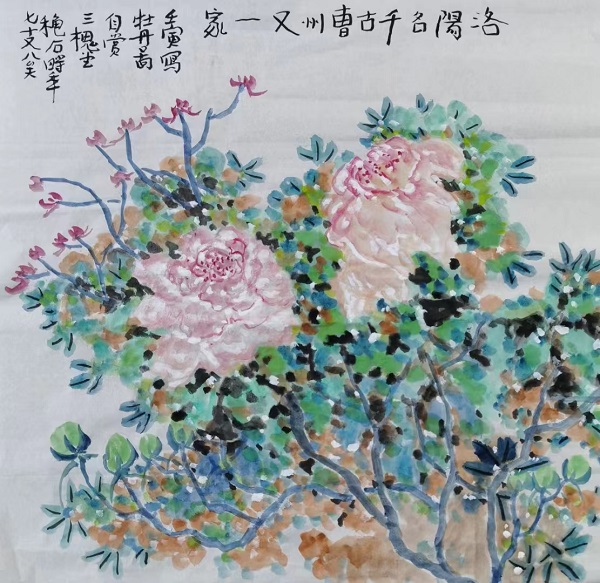 洛陽名千古曹州又一家
壬寅寫
牡丹圖
自賞
三槐堂
穐石時年
七十又八矣